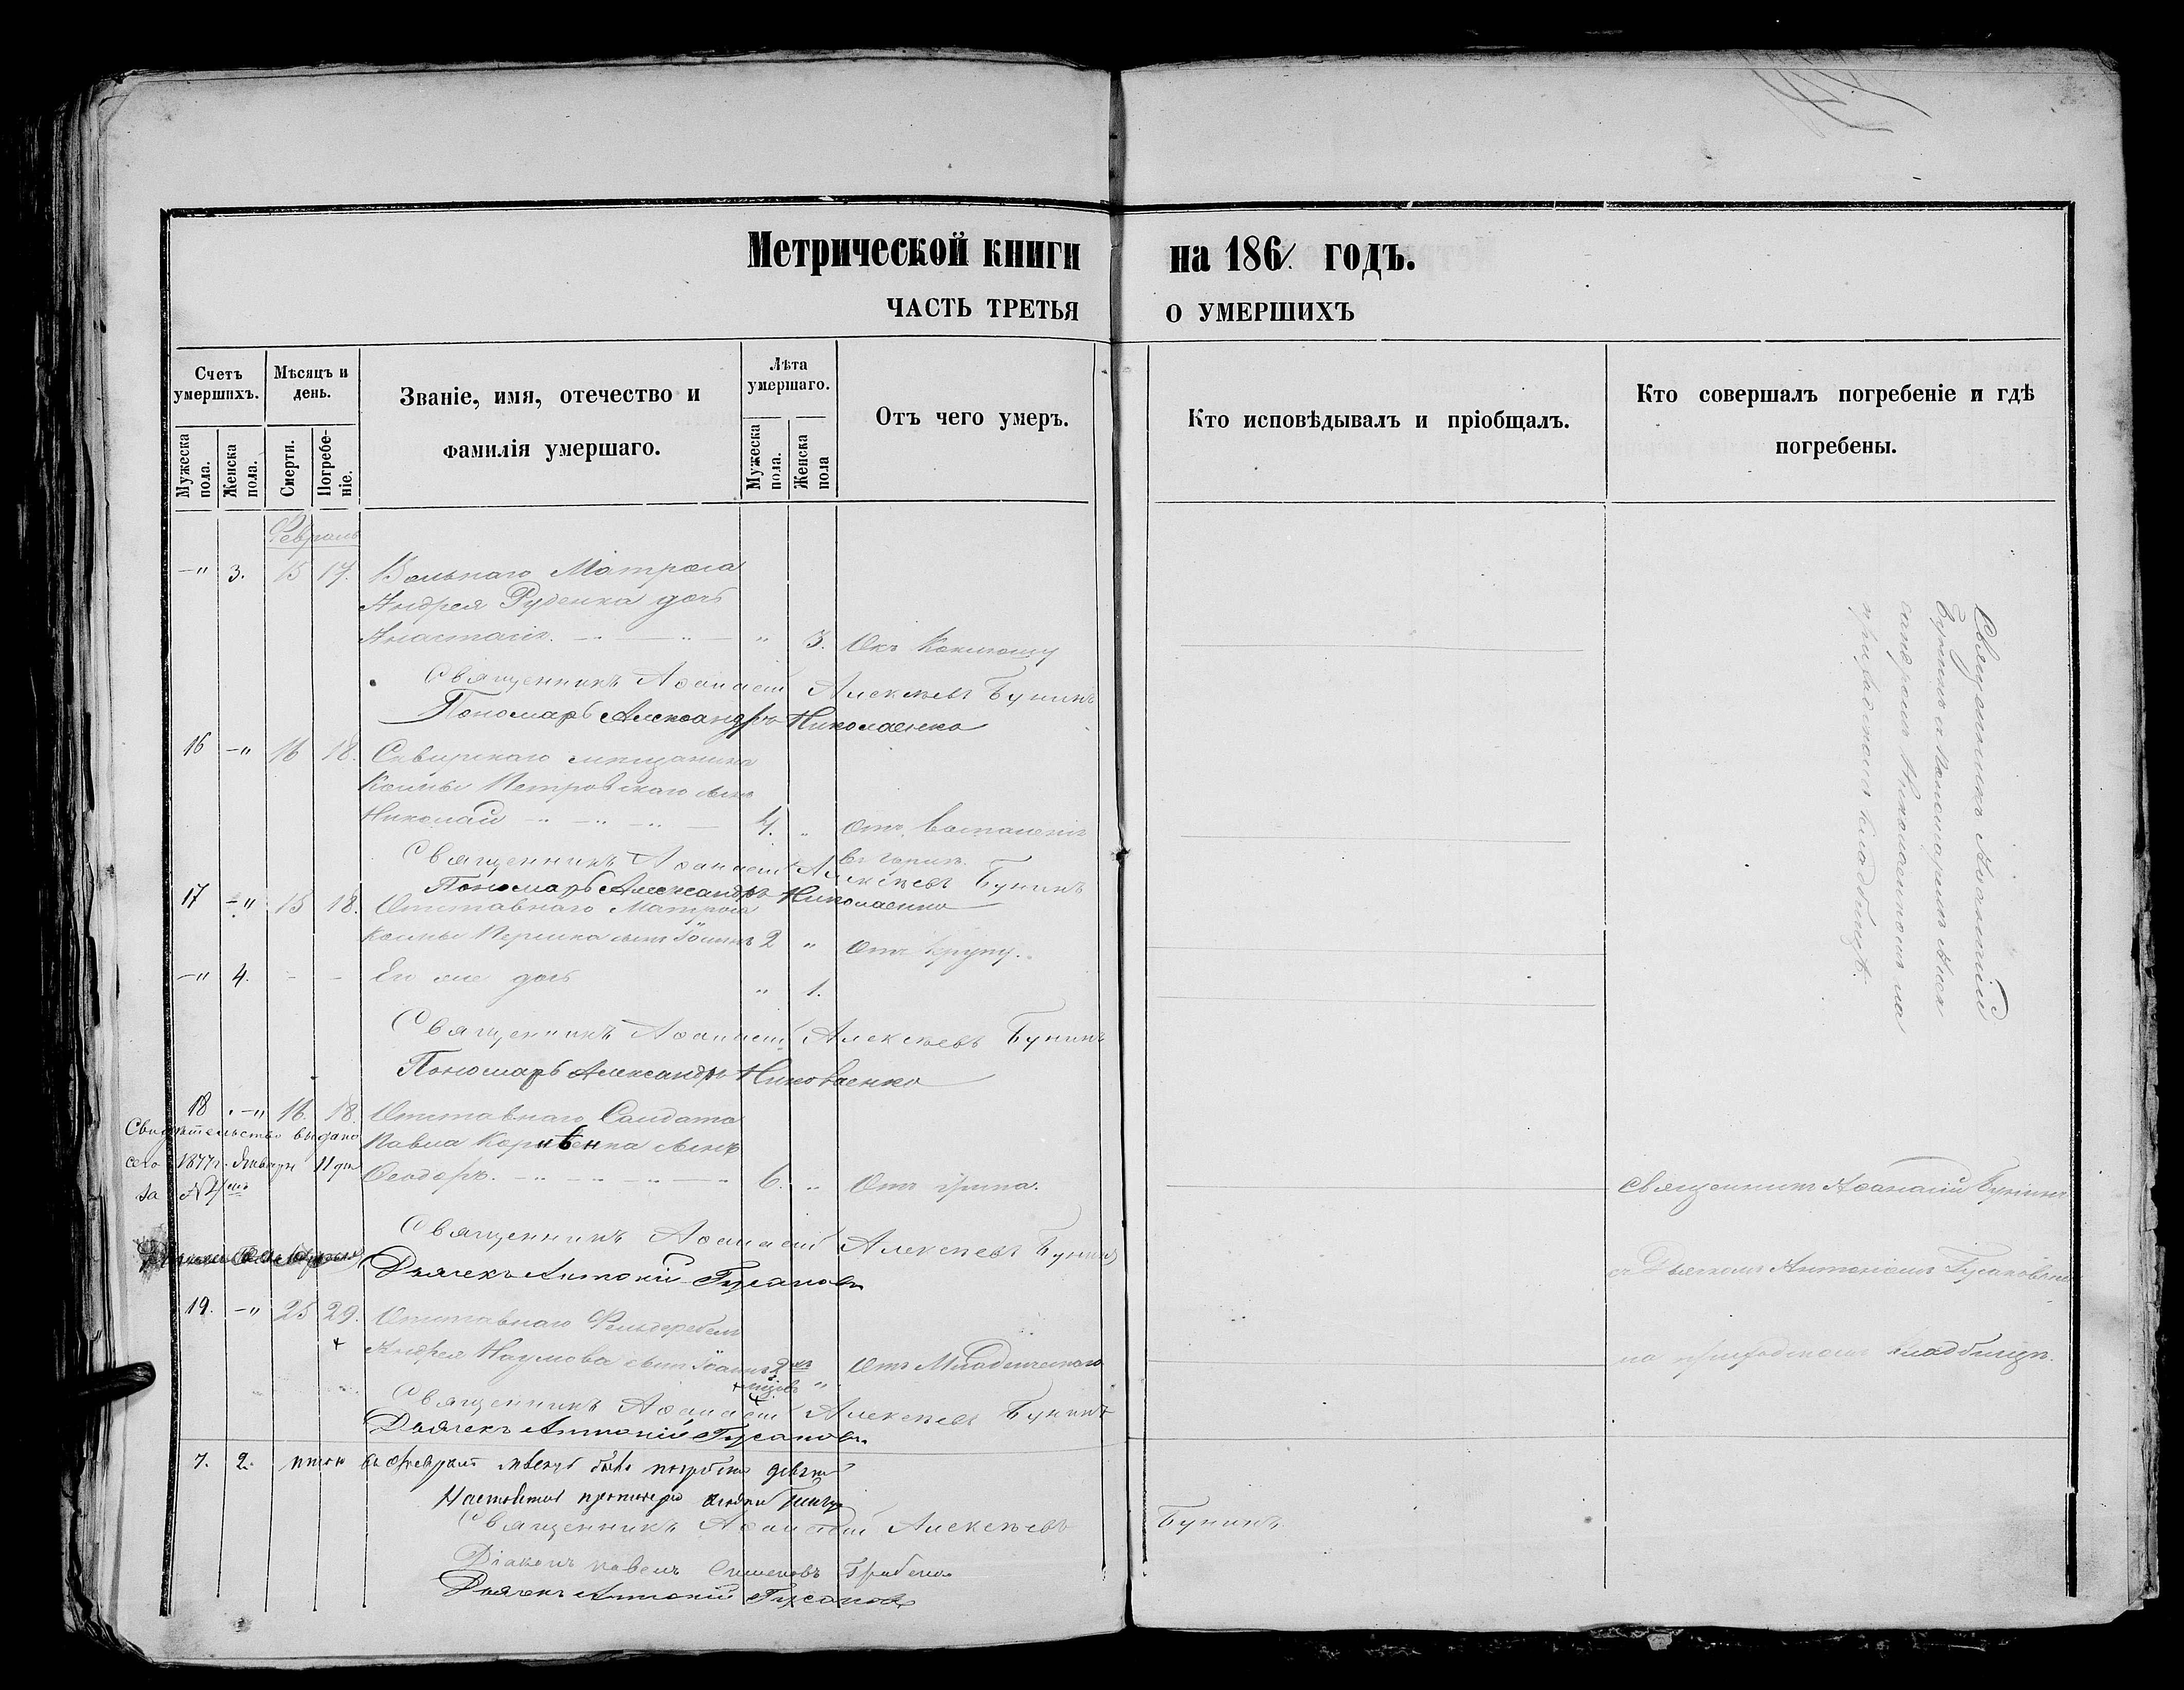 Метрической книги на 186 годъ.
ЧАСТЬ ТРЕТЬЯ О УМЕРШИХЪ
Счетъ умершихъ.
Мѣсяцъ и день.
Званіе, имя, отечество и фамилія умершаго.
Лѣта умершаго.
Отъ чего умеръ.
Кто исповѣдывалъ и пріобщалъ.
Кто совершалъ погребеніе и гдѣ погребены.
Мужеска пола.
Женска пола.
Смерти.
Погребеніе.
Мужеска пола.
Женска пола
Февраль
-" 3. 15 17. Вольнаго Матроса
Андрея Руденка дочь
Анастасія. " 3. Отъ Коклюшу
Священникъ Аѳанасій Алексѣевъ Бунинъ
Пономарь Александръ Николаенко
16 -" 16 18. Сквирскаго мещанина
Козмы Петровскаго сынъ
Николай 4. " Отъ воспаленія
въ горлѣ.
Священникъ Аѳанасій Алексѣевъ Бунинъ
Пономарь Александръ Николаенко
17 -" 15 18. Отставнаго Матроса
Козмы сынъ Іоаннъ 2 " Отъ крупу.
-" 4. - - Ею же дочь " 1.
Священникъ Аѳанасій Алексѣевъ Бунинъ
Пономарь Александръ Николаенко
18 -" 16. 18. Отставнаго Салдата
Свидѣтельство выдано
Павла Корнѣенка сынъ
сего 1877 г. Января 11 дня
Ѳеодоръ. 6. " Отъ грипа.
за №
Священникъ Аѳанасій Бунинъ
Священникъ Аѳанасій Алексѣевъ Бунинъ
съ Дьячкомъ Антоніемъ Гусаковымъ
Дьячекъ Антоній Гусаковъ
19. -" 25 29. Отставнаго Фельдфебеля
Андрея Наумова сынъ Іоаннъ 2 " Отъ Младенческаго
на приходскомъ кладбищѣ.
Священникъ Аѳанасій Алексѣевъ Бунинъ
Дьячекъ Антоній Гусаковъ
7. 2. Итого въ Февралѣ мѣсяцѣ было погребено девять
Священникъ Аѳанасій Алексѣевъ Бунинъ.
Діаконъ Павелъ Симеоновъ
Дьячекъ Антоній Гусаковъ
Священникъ Аѳанасій
Бунинъ съ Пономаремъ Алек
сандромъ Николаенкомъ на
приходскомъ кладбищѣ.